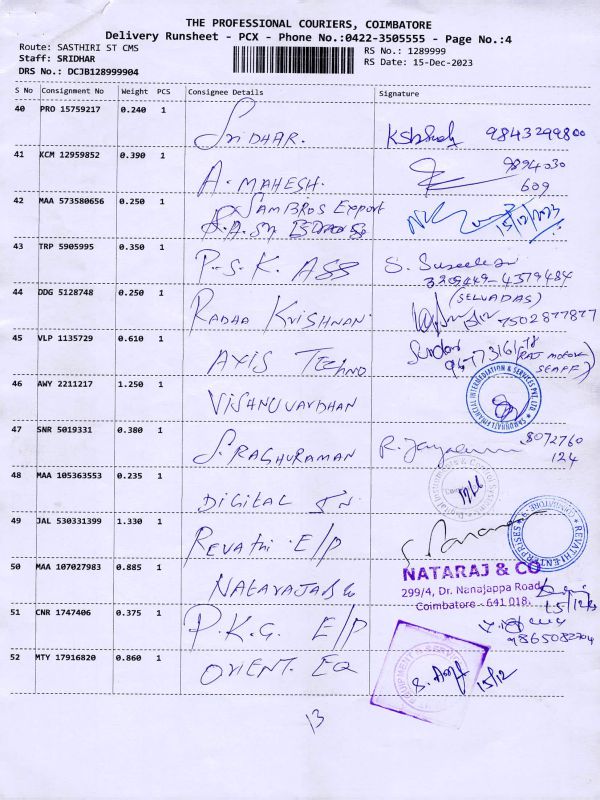 THE PROFESSIONAL COURIERS, COIMBATORE
Delivery Runsheet - PCX - Phone No.:0422-3505555 - Page No.:4
Route: SASTHIRI ST CMS
RS No.: 1289999
Staff: SRIDHAR
RS Date: 15-Dec-2023
DRS No.: DCJB128999904
S No Consignment No Weight PCS Consignee Details Signature
40 PRO 15759217 0.240 1 SRIDHAR. 9843299800
41 KCM 12959852 0.390 1 A. MAHESH. 9894030
609
42 MAA 573580656 0.250 1 SAMBROS Export
15/12/2023
43 TRP 5905995 0.350 1 P.S.K. ASS S.
44 DDG 5128748 0.250 1 RADHA KRISHNAN
(SELVADAS)
15/12 7502877877
45 VLP 1135729 0.610 1 AXIS TECHNO
(RAJ MOTOR
STAFF)
46 AWY 2211217 1.250 1 VISHNUVARDHAN
47 SNR 5019331 0.380 1 S. RAGHURAMAN R. 8072760
124
48 MAA 105363553 0.235 1 DIGITAL IN.
49 JAL 530331399 1.330 1 REVATHI E/P
REVATHI ENTERPRISES
50 MAA 107027983 0.885 1
NATARAJ & CO
299/4, Dr. Nanajappa Road,
Coimbatore - 641 018.
15/12/23
51 CNR 1747406 0.375 1 P.K.G. E/P
9865082704
52 MTY 17916820 0.860 1 ORIENT. EQ
15/12
13